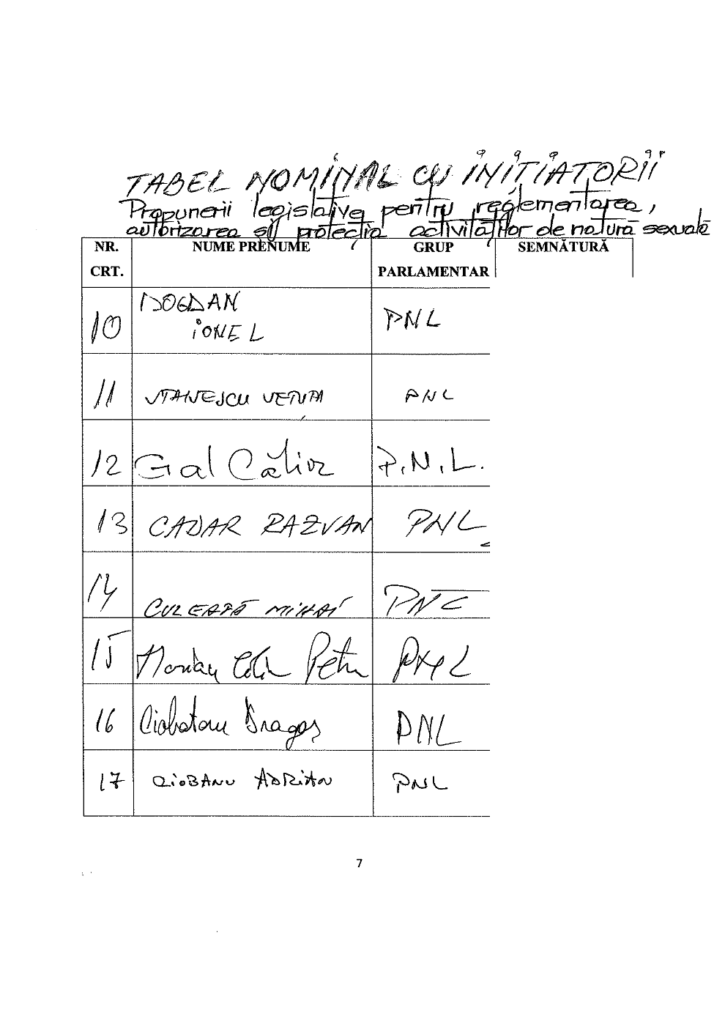 TABEL NOMINAL CU INIȚIATORII
Propunerii legislative pentru reglementarea,
autorizarea și protecția activităților de natură sexuală
NR. CRT. NUME PRENUME GRUP PARLAMENTAR SEMNĂTURĂ
10 BOGDAN IONEL PNL
11 STANESCU VETUTA PNL
12 Gal Călin P.N.L.
13 CADAR RAZVAN PNL
14 MIHAI PNL
15 Petru PNL
16 Ciobotaru Dragoș PNL
17 CIOBANU ADRIAN PNL
7